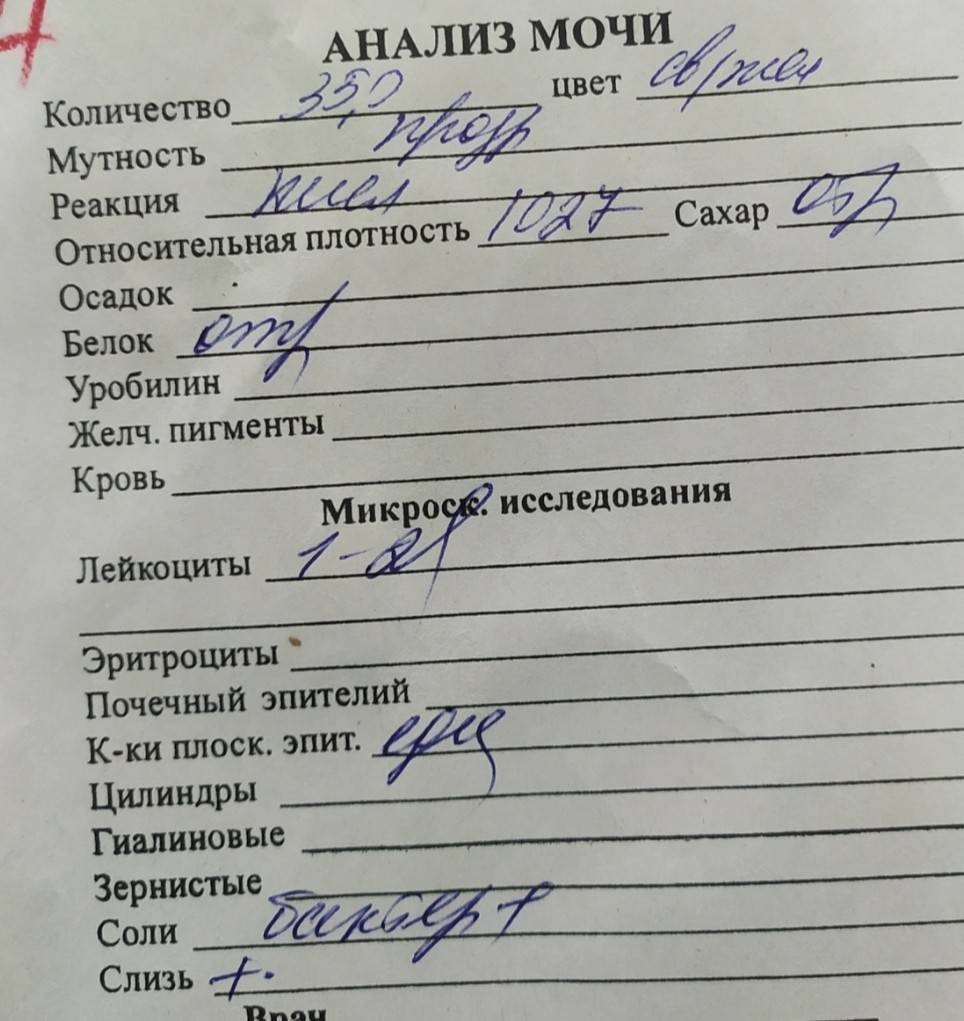 АНАЛИЗ МОЧИ
Количество 35,0 цвет св/жел
Мутность прозр
Реакция кисл
Относительная плотность 1027 Сахар отр
Осадок
Белок отр
Уробилин
Желч. пигменты
Кровь
Микроск. исследования
Лейкоциты 1-2
Эритроциты
Почечный эпителий
К-ки плоск. эпит. един
Цилиндры
Гиалиновые
Зернистые
Соли бактер +
Слизь +.
Врач